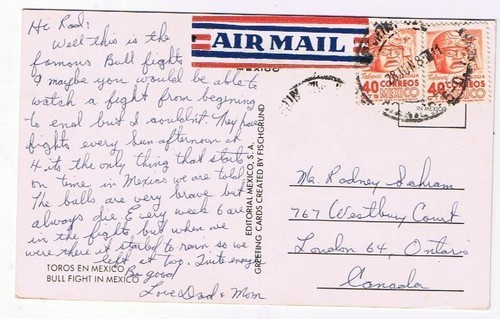 Hi Rod:
Well this is the
famous Bull fights
& maybe you would be able to
watch a fight from beginning
to end but I couldn't. They have
fights every Sun. afternoon at
4 its the only thing that starts
on time in Mexico we are told.
The bulls are very brave but
always die & every week 6 are
in the fights, but when we
were there it started to rain so we
left at top. Quite enough
Be good
Love Dad & Mom
TOROS EN MEXICO
BULL FIGHT IN MEXICO
MEXICO
EDITORIAL MEXICO, S.A.
GREETING CARDS CREATED BY FISCHGRUND
AIR MAIL
Tabasco
40
CORREOS
MEXICO
Tabasco
40
CORREOS
MEXICO
IN MEXICO
Mr. Rodney
767 Westbury Court
London 64, Ontario
Canada